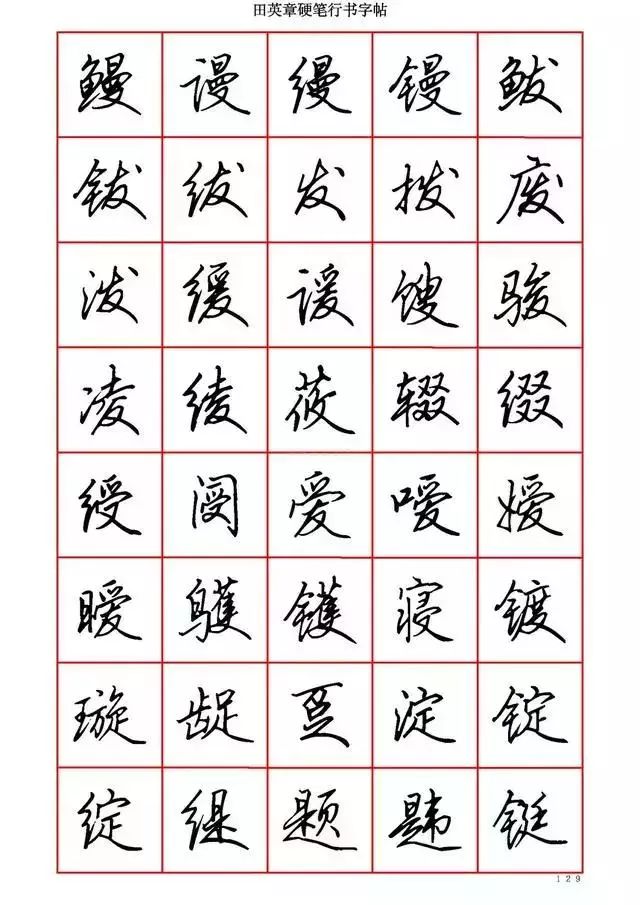 田英章硬笔行书字帖
鳗谩缦镘鲅
钹绂发拨废
泼缓谖馊骏
凌绫莜辍缀
绶阌爱嗳嫒
暧鹱镬寝镀
璇龊疍淀锭
绽缇题韪铤
129